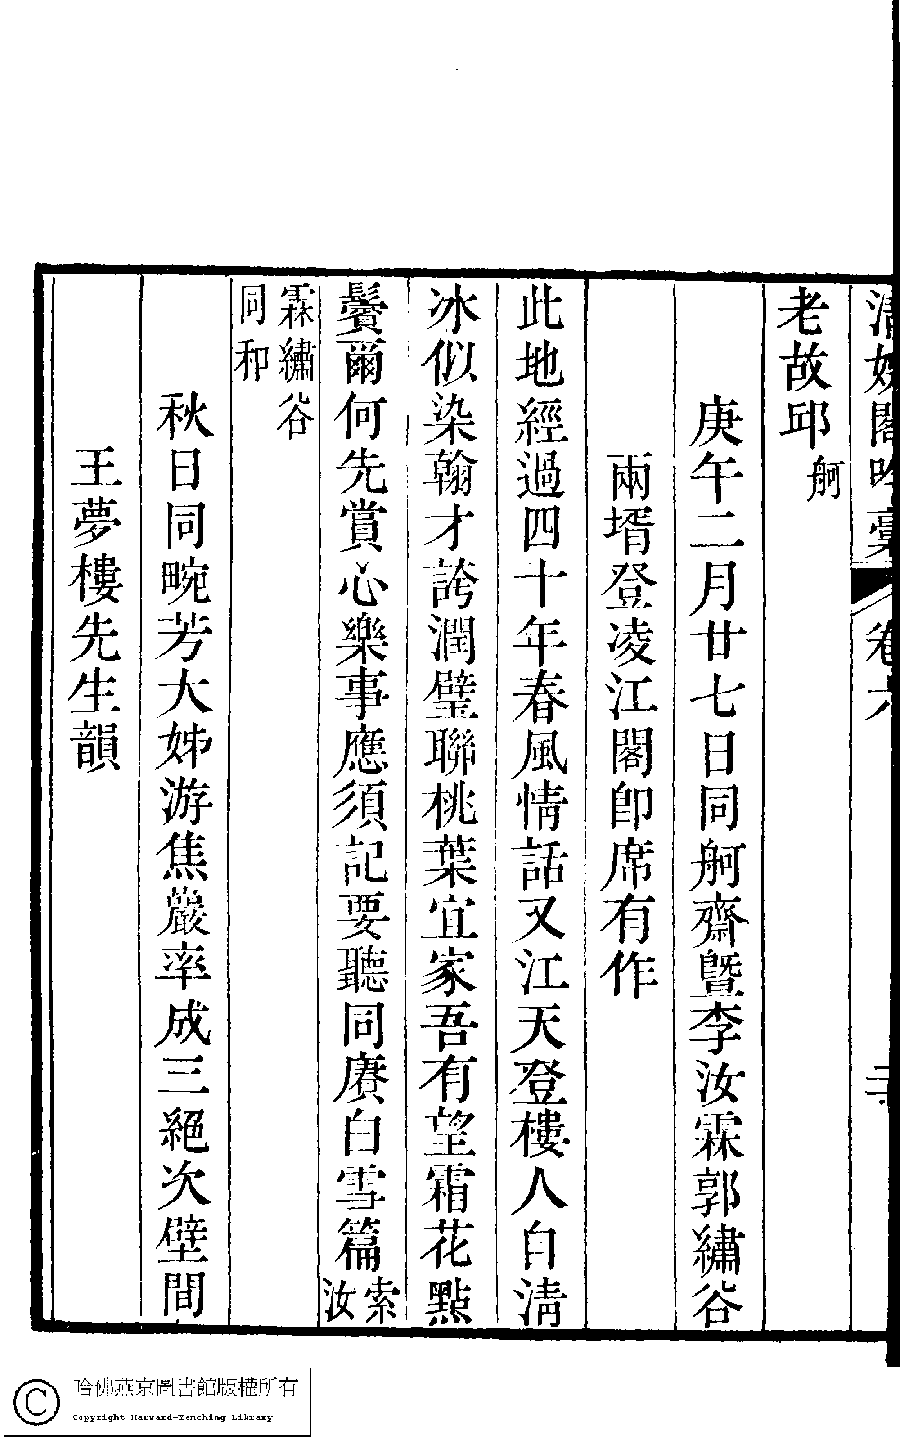 清娛閣吟藁 卷六
老故邱 舸
庚午二月廿七日同舸齋暨李汝霖郭繡谷
兩壻登凌江閣卽席有作
此地經過四十年春風情話又江天登樓人自清
冰似染翰才誇潤璧聯桃葉宜家吾有望霜花點
鬢爾何先賞心樂事應須記要聽同賡白雪篇 索汝
霖繡谷同和
秋日同畹芳大姊游焦巖率成三絕次壁間
王夢樓先生韻
哈佛燕京圖書館版權所有
Copyright Harvard-Yenching Library